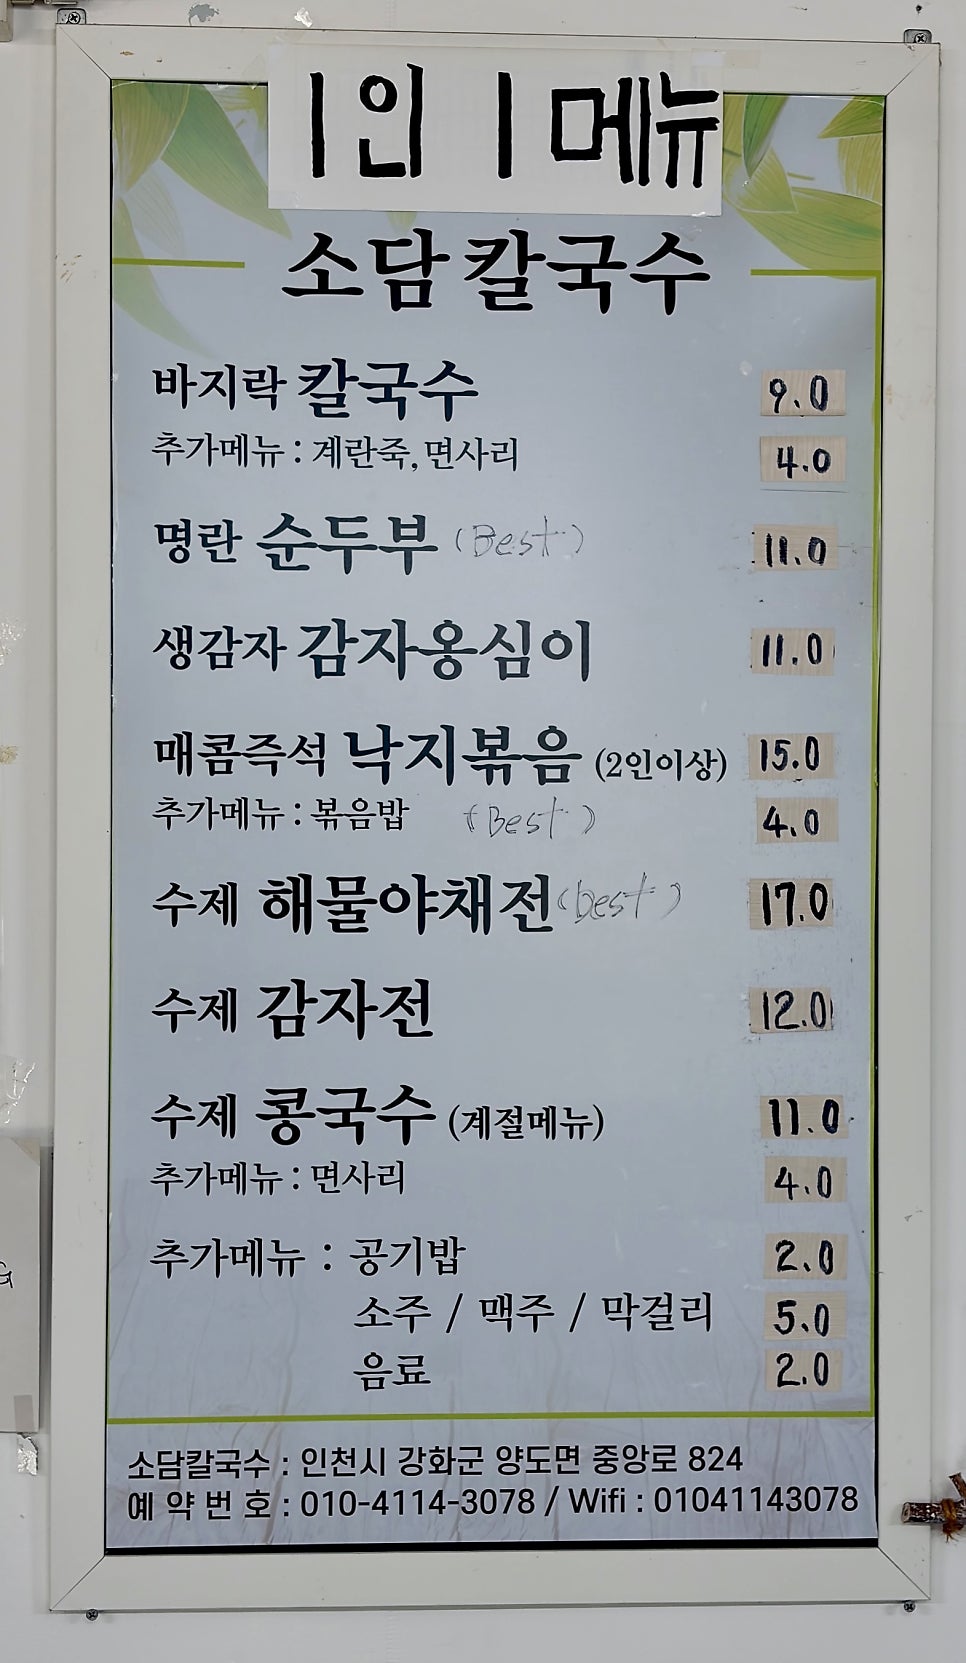 1인 1메뉴
소담칼국수
바지락 칼국수 9.0
추가메뉴 : 계란죽, 면사리 4.0
명란 순두부 (Best) 11.0
생감자 감자옹심이 11.0
매콤즉석 낙지볶음 (2인이상) 15.0
추가메뉴 : 볶음밥 (Best) 4.0
수제 해물야채전 (best) 17.0
수제 감자전 12.0
수제 콩국수 (계절메뉴) 11.0
추가메뉴 : 면사리 4.0
추가메뉴 : 공기밥 2.0
소주 / 맥주 / 막걸리 5.0
음료 2.0
소담칼국수 : 인천시 강화군 양도면 중앙로 824
예 약 번 호 : 010-4114-3078 / Wifi : 01041143078
G